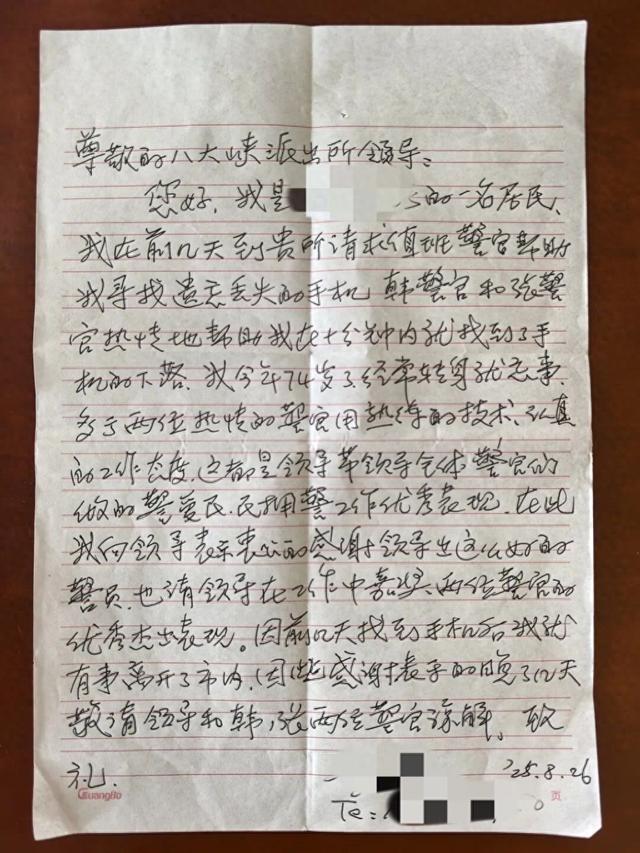 尊敬的八大峡派出所领导：
您好，我是 的一名居民，
我在前几天到贵所请求值班警官帮助
我寻找遗忘丢失的手机，韩警官和张警
官热情地帮助我在十分钟内就找到了手
机的下落。我今年74岁了经常转身就忘事，
多亏两位热情的警官用熟练的技术、认真
的工作态度，这都是领导带领导全体警官们
做的警爱民、民拥警工作优秀表现，在此
我向领导表示衷心的感谢领导出这么好的
警员，也请领导在工作中嘉奖两位警官的
优秀杰出表现。因前几天找到手机后我就
有事离开了市内，因此感谢表示的晚了几天
敬请领导和韩，张两位警官谅解，致
礼.
'25.8.26
GuangBo
Te:
页